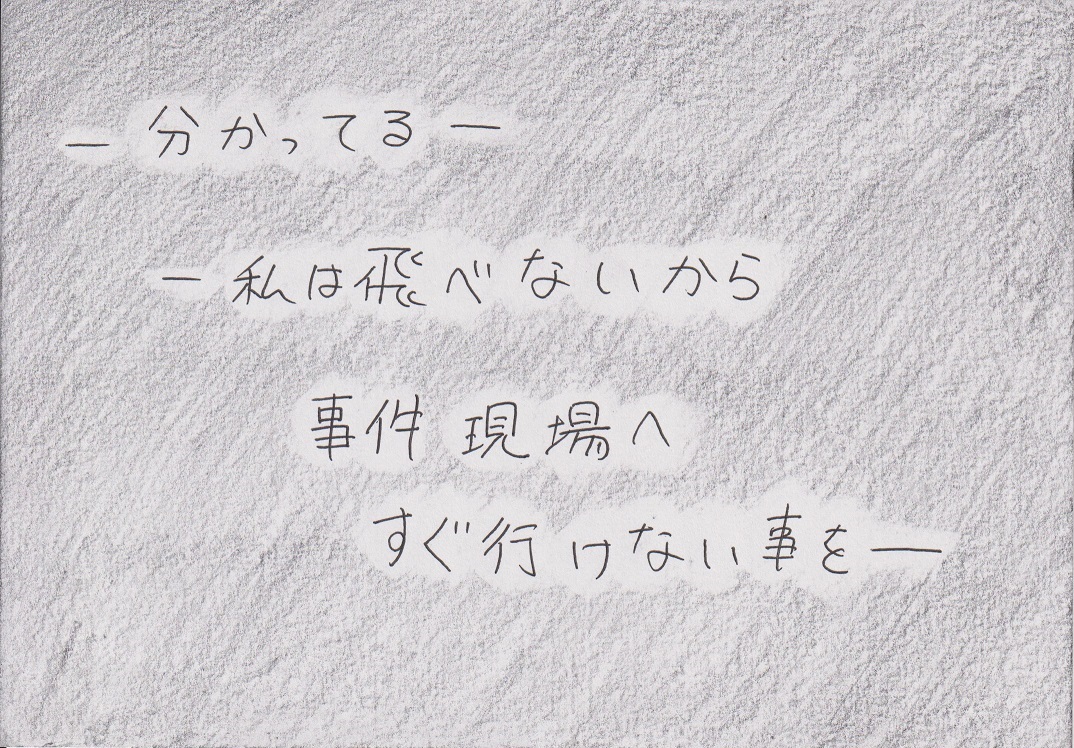 ― 分かってる ―
― 私は飛べないから
事件現場へ
すぐ行けない事を ―